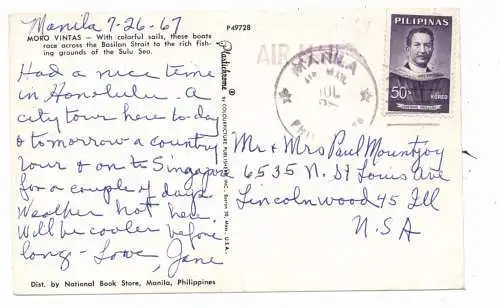 Manila 7-26-67
MORO VINTAS — With colorful sails, these boats
race across the Basilan Strait to the rich fish-
ing grounds of the Sulu Sea.
Had a nice time
in Honolulu. A
city tour here to-day
& tomorrow a country
tour & on to Singapore
for a couple of days.
Weather hot here.
Will be cooler before
long - Love, Jane
Dist. by National Book Store, Manila, Philippines
P49728
Plastichrome ®
by COLOURPICTURE PUBLISHERS, INC., Boston 30, Mass., U.S.A.
AIR MAIL
MANILA
AIR MAIL
JUL
PILIPINAS
50s
KOREO
Mr & Mrs Paul Mountjoy
6535 N. St Louis Ave
Lincolnwood 45 Ill
U.S.A